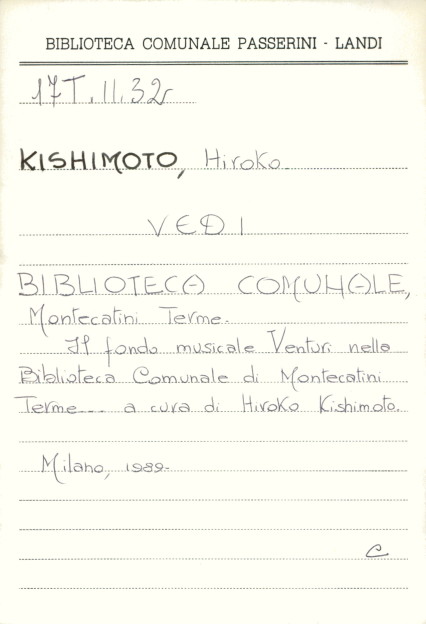 BIBLIOTECA COMUNALE PASSERINI - LANDI
17T.II.32
KISHIMOTO, Hiroko
VEDI
BIBLIOTECA COMUNALE,
Montecatini Terme.
Il fondo musicale Venturi nella
Biblioteca Comunale di Montecatini
Terme... a cura di Hiroko Kishimoto.
Milano, 1989.
C